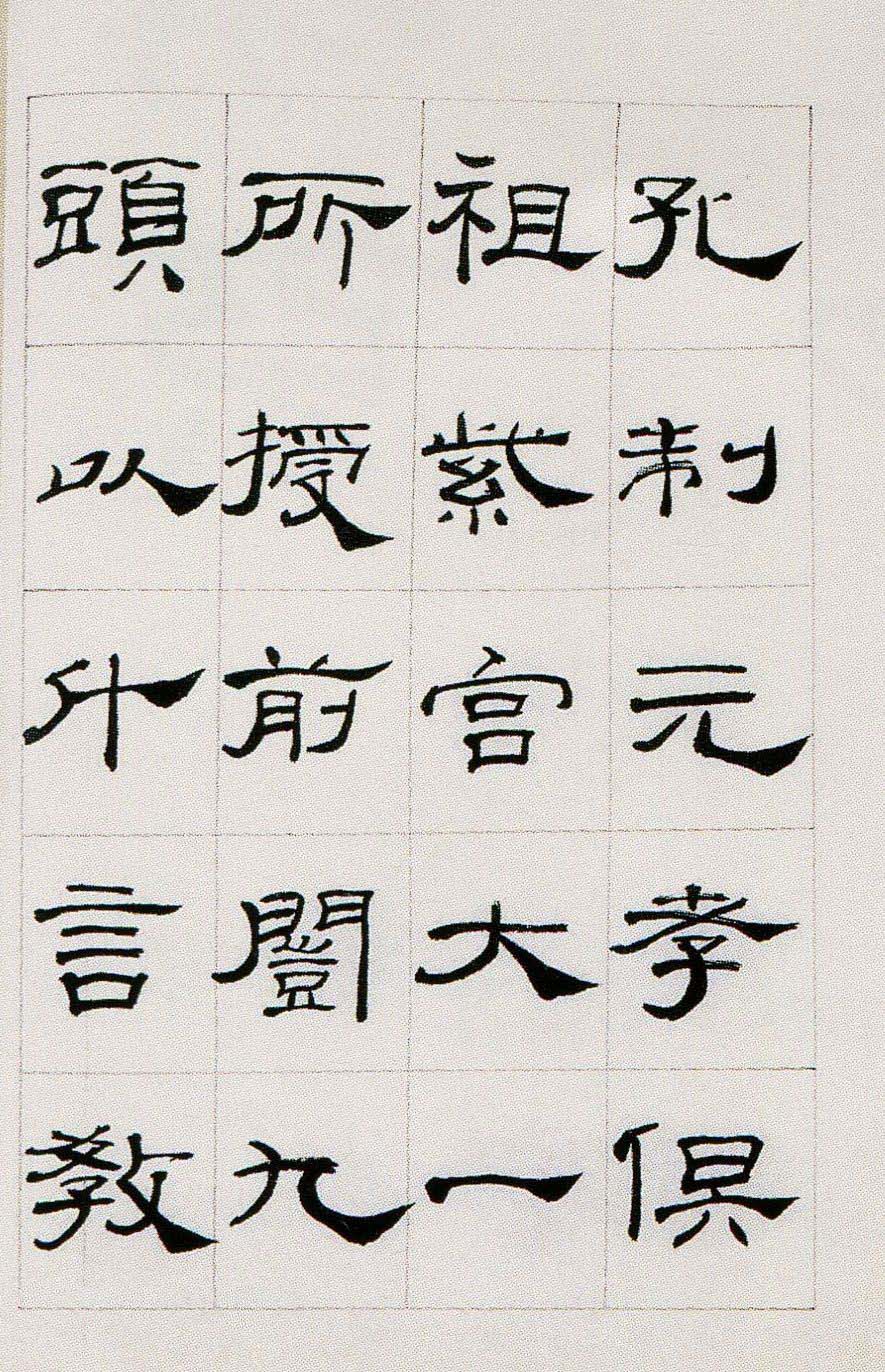 孔制元孝俱
祖紫宮大一
所授前闓九
頭以什言教